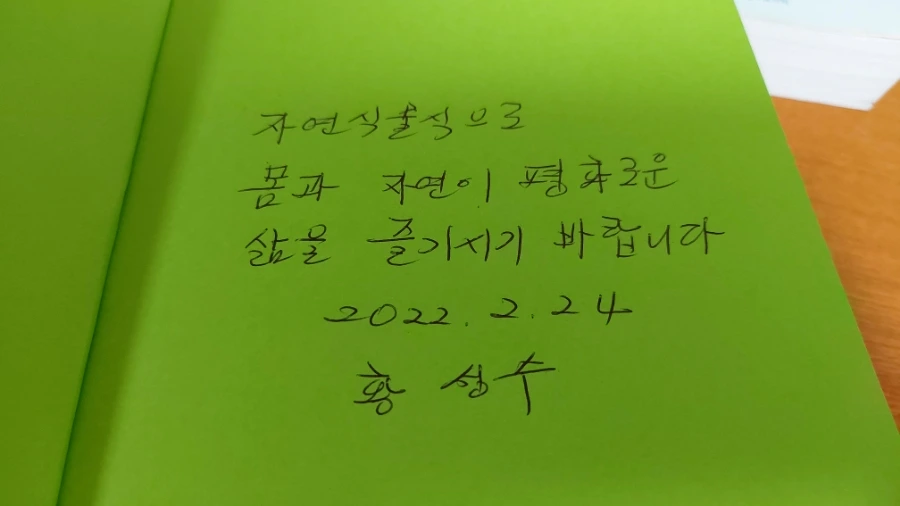 자연식물식으로
몸과 자연이 평화로운
삶을 즐기시기 바랍니다
2022. 2. 24
황 성수